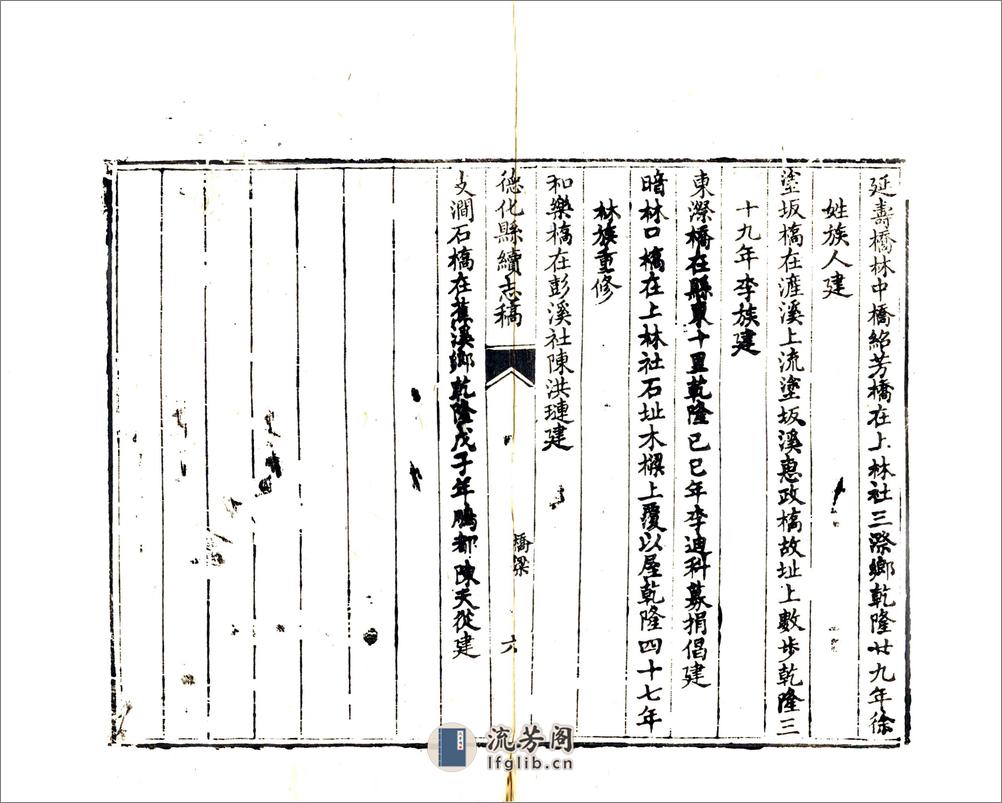 延壽橋林中橋紹芳橋在上林社三漈鄉乾隆廿九年徐
姓族人建
塗坂橋在漄溪上流塗坂溪惠政橋故址上數步乾隆三
十九年李族建
東漈橋在縣東十里乾隆己巳年李迪科募捐倡建
暗林口橋在上林社石址木樑上覆以屋乾隆四十七年
林族重修
和樂橋在彭溪社陳洪璉建
德化縣續志稿
橋梁
六
支澗石橋在蕉溪鄉乾隆戊子年鵬都陳天從建
流芳阁
lfglib.cn